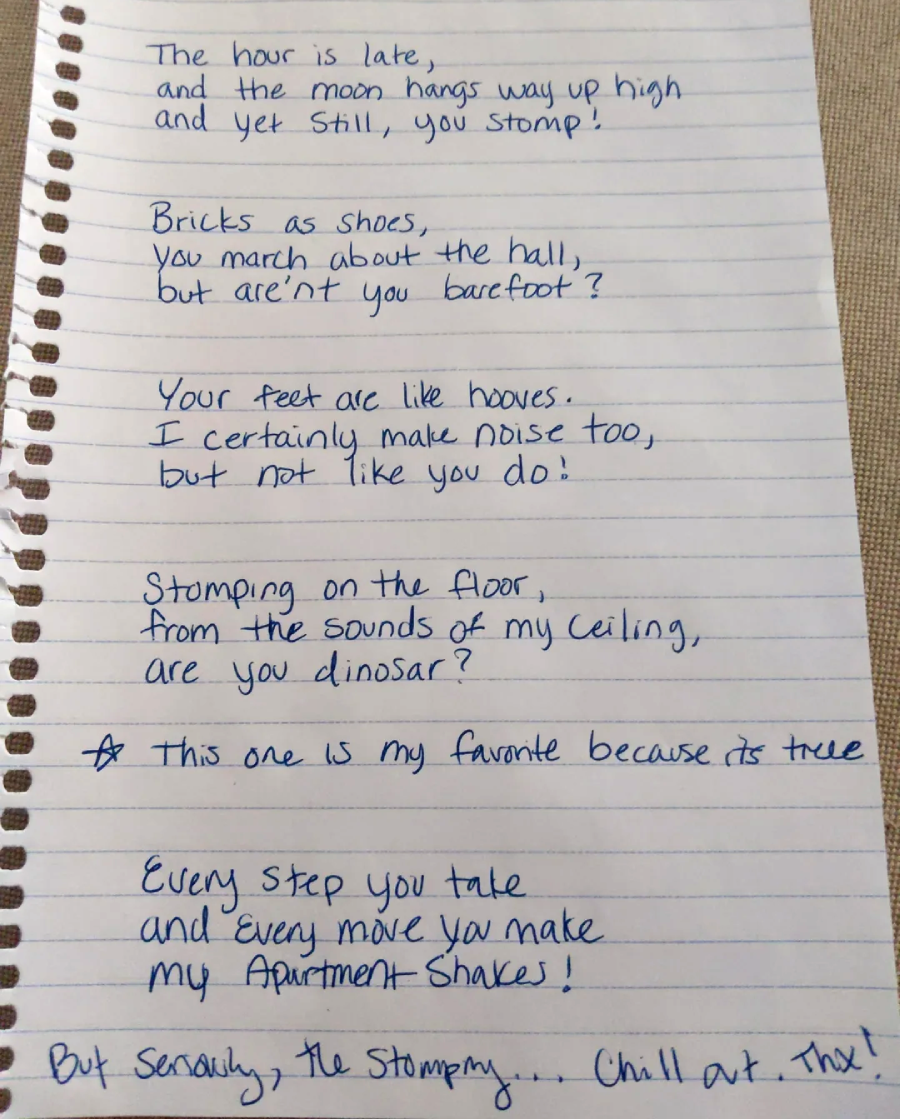 The hour is late,
and the moon hangs way up high
and yet still, you stomp!
Bricks as shoes,
you march about the hall,
but are'nt you barefoot?
Your feet are like hooves.
I certainly make noise too,
but not like you do!
Stomping on the floor,
from the sounds of my ceiling,
are you dinosar?
☆ This one is my favorite because its true
Every step you take
and Every move you make
my Apartment Shakes!
But Seriously, the Stomping... Chill out. Thx!